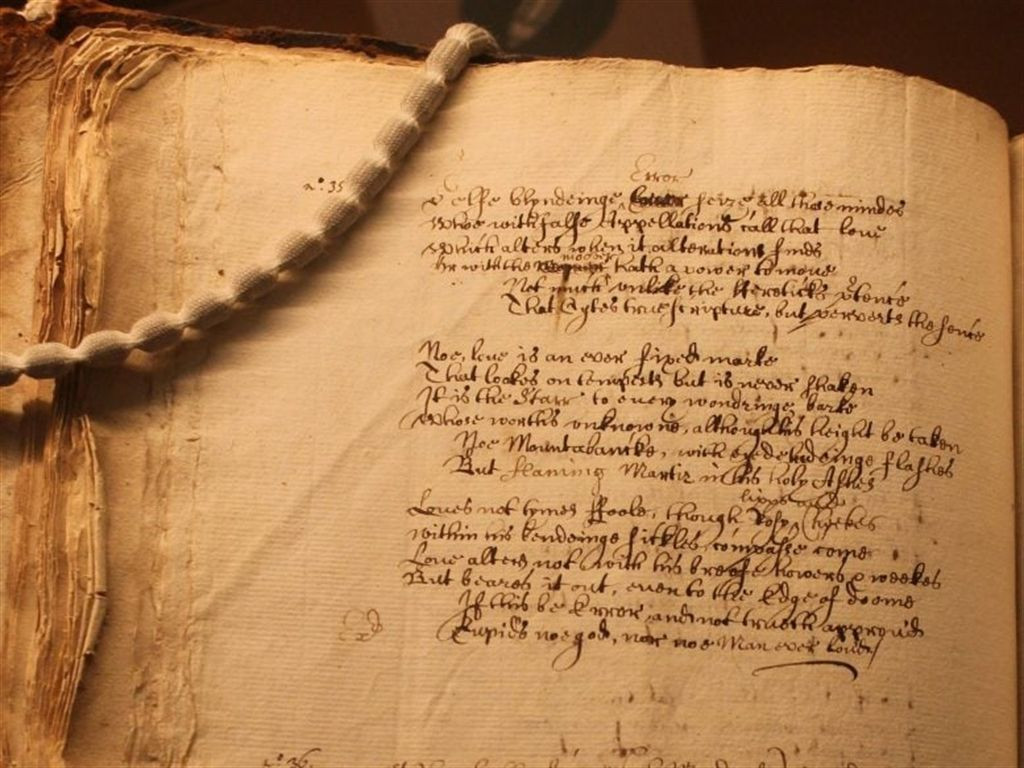 n.º 35
Error
Selfe blyndeinge seize all those mindes
Whoe with false Appellations call that loue
Which alters when it alterations finds
moover
Or with the hath a power to moue
Not much vnlike the Hereticks p̄tence
That Cytes true scripture, but perverts the sence
Noe, loue is an ever fixed marke
That lookes on tempests but is never shaken
It is the Starr to euery wondringe barke
Whose worths vnknowne, although his height be taken
Noe Mountabancke, with eye deludeinge flashes
But flaming Martir in his holy Ashes
lipps and
Loues not tymes Foole, though Rosy Cheekes
within his bendeinge sickles compasse come
Loue alters not with his breife howers & weekes
But beares it out, euen to the Edge of doome
If this be Error and not trueth approu'd
Cupids noe god, nor noe Man ever lou'd
nº 36